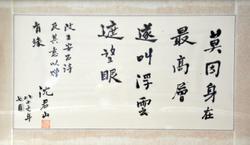 莫因身在
最高層
遂叫浮雲
遮望眼
改王安石詩
及其意以贈
有緣
沈君山
八十七年
七月